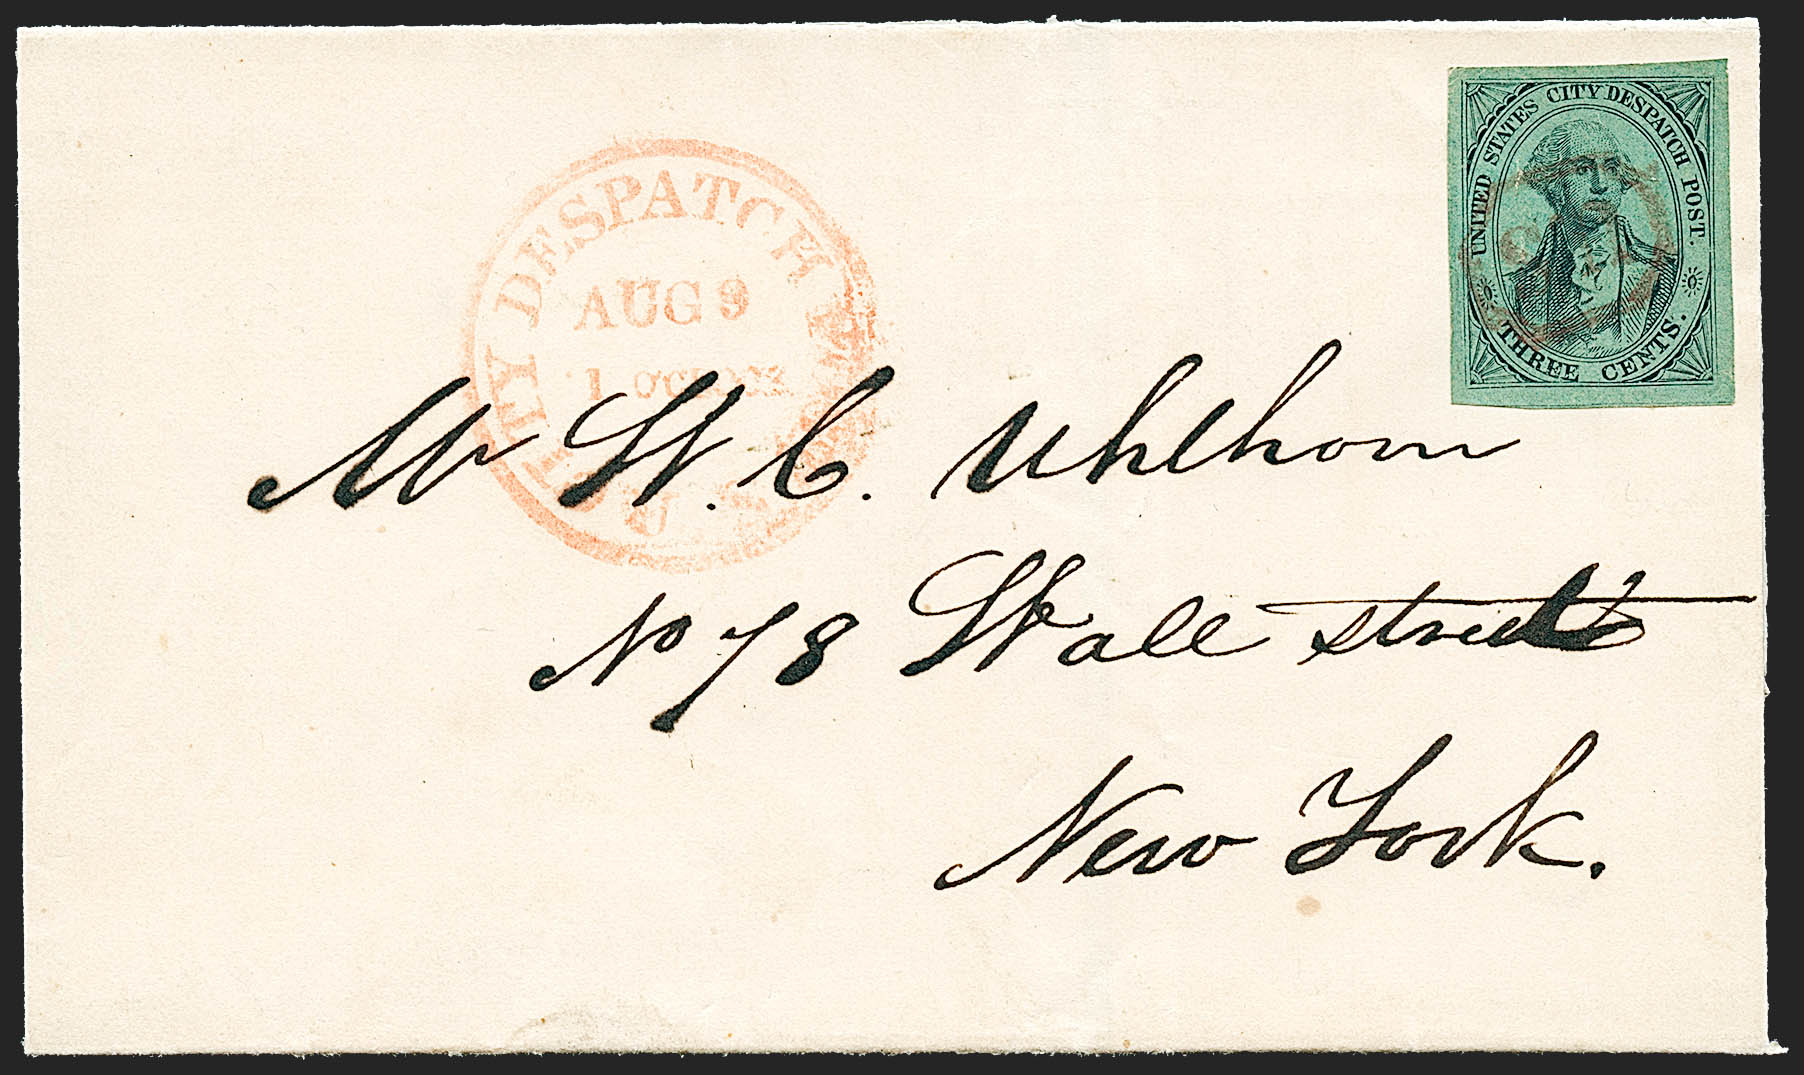 UNITED STATES CITY DESPATCH POST.
THREE CENTS.
U.S. CITY DESPATCH POST
AUG 9
1 O'CLOCK
Mr W. C. Uhlhorn
No 78 Wall street
New York.